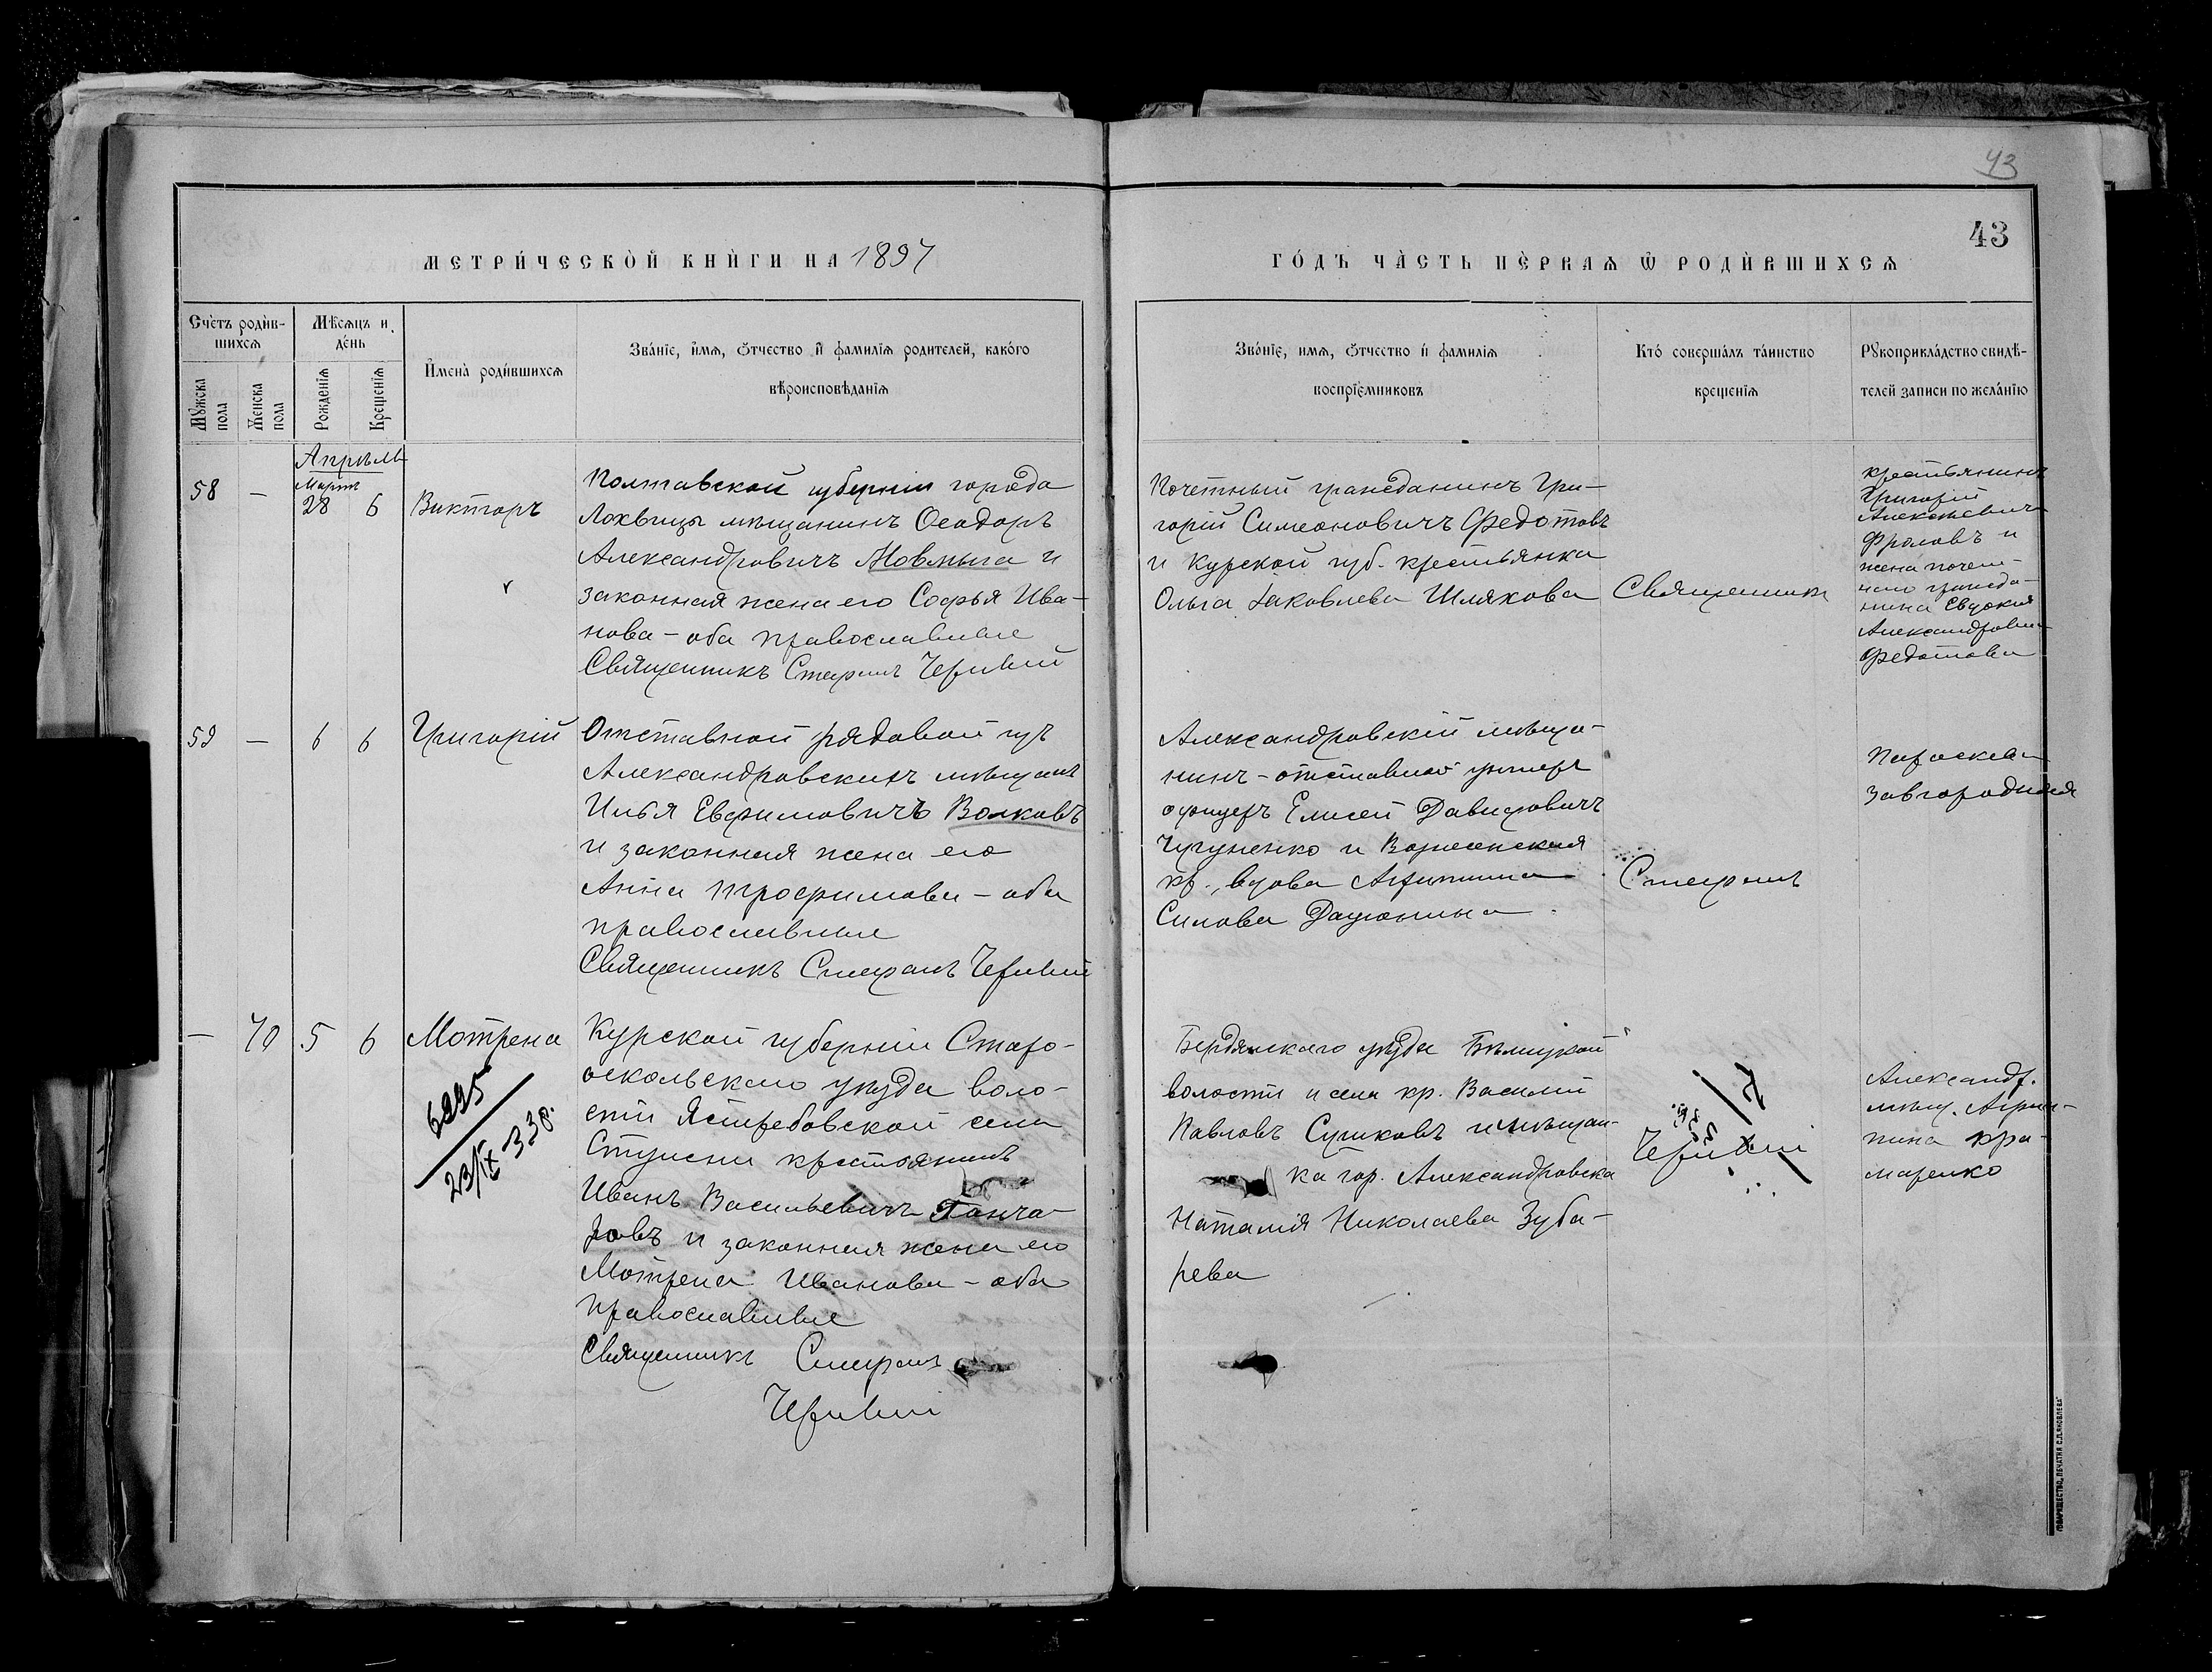 43
43
МЕТРИ́ЧЕСКОЙ КНИ́ГИ НА 1897
ГО́ДЪ ЧА́СТЬ ПЕ́РВАѦ Ѡ РОДИ́ВШИХСѦ
Сче́тъ роди́в-
шихсѧ
Мѣ́сѧцъ и
де́нь
Мꙋ́жеска
пола
Же́нска
пола
Рожде́нїѧ
Креще́нїѧ
И҆мена̀ роди́вшихсѧ
Зва́нїе, и҆́мѧ, ѻ҆́тчество и҆ фамилїѧ родителей, како́гѡ
вѣроисповѣ́данїѧ
Зва́нїе, имѧ, ѻ҆́тчество и҆ фамилїѧ
воспрїе́мниковъ
Кто́ соверша́лъ та́инство
креще́нїѧ
Рꙋкоприкла́дство свидѣ́-
телей записи по жела́нїю
58
—
Апрѣль
Мартъ
28
6
Викторъ
Полтавской губерніи города
Лохвицы мѣщанинъ Ѳеодоръ
Александровичъ
и
законная жена его Софья Ива-
нова – оба православные
Священникъ Стефанъ
Почетный гражданинъ Гри-
горій Симеоновичъ Федотовъ
и Курской губ. крестьянка
Ольга Іаковлева Шлякова
Священникъ
крестьянинъ
Григорій
Алексѣевичъ
Фроловъ и
жена почет-
наго гражда-
нина Евдокия
Александровна
Федотова
59
—
6
6
Григорій
Отставной рядовой изъ
Александровскихъ мѣщанъ
Илья Евфимовичъ Волковъ
и законная жена его
Анна Трофимова – оба
православные
Священникъ Стефанъ
Александровскій мѣща-
нинъ – отставной унтеръ
офицеръ Елисей Давидовичъ
Чугуненко и Вознесенская
кр., вдова Агрипина
Силова
Стефанъ
Параскева
Завгородняя
—
70
5
6
Мотрена
6995
23/IX-33р.
Курской губерніи Старо-
оскольскаго уѣзда воло-
сти Ястребовской села
крестьянинъ
Иванъ Васильевичъ Гонча-
ровъ и законная жена его
Мотрена Иванова – оба
православные
Священникъ Стефанъ
Бердянскаго уѣзда
волости и села кр. Василій
Павловъ Сушковъ и мѣщан-
ка гор. Александровска
Наталія Николаева Зуба-
рева
Александр.
мѣщ. Агрип-
пина Кра-
маренко
ТОВАРИЩЕСТВО „ПЕЧАТНЯ С.П.ЯКОВЛЕВА"